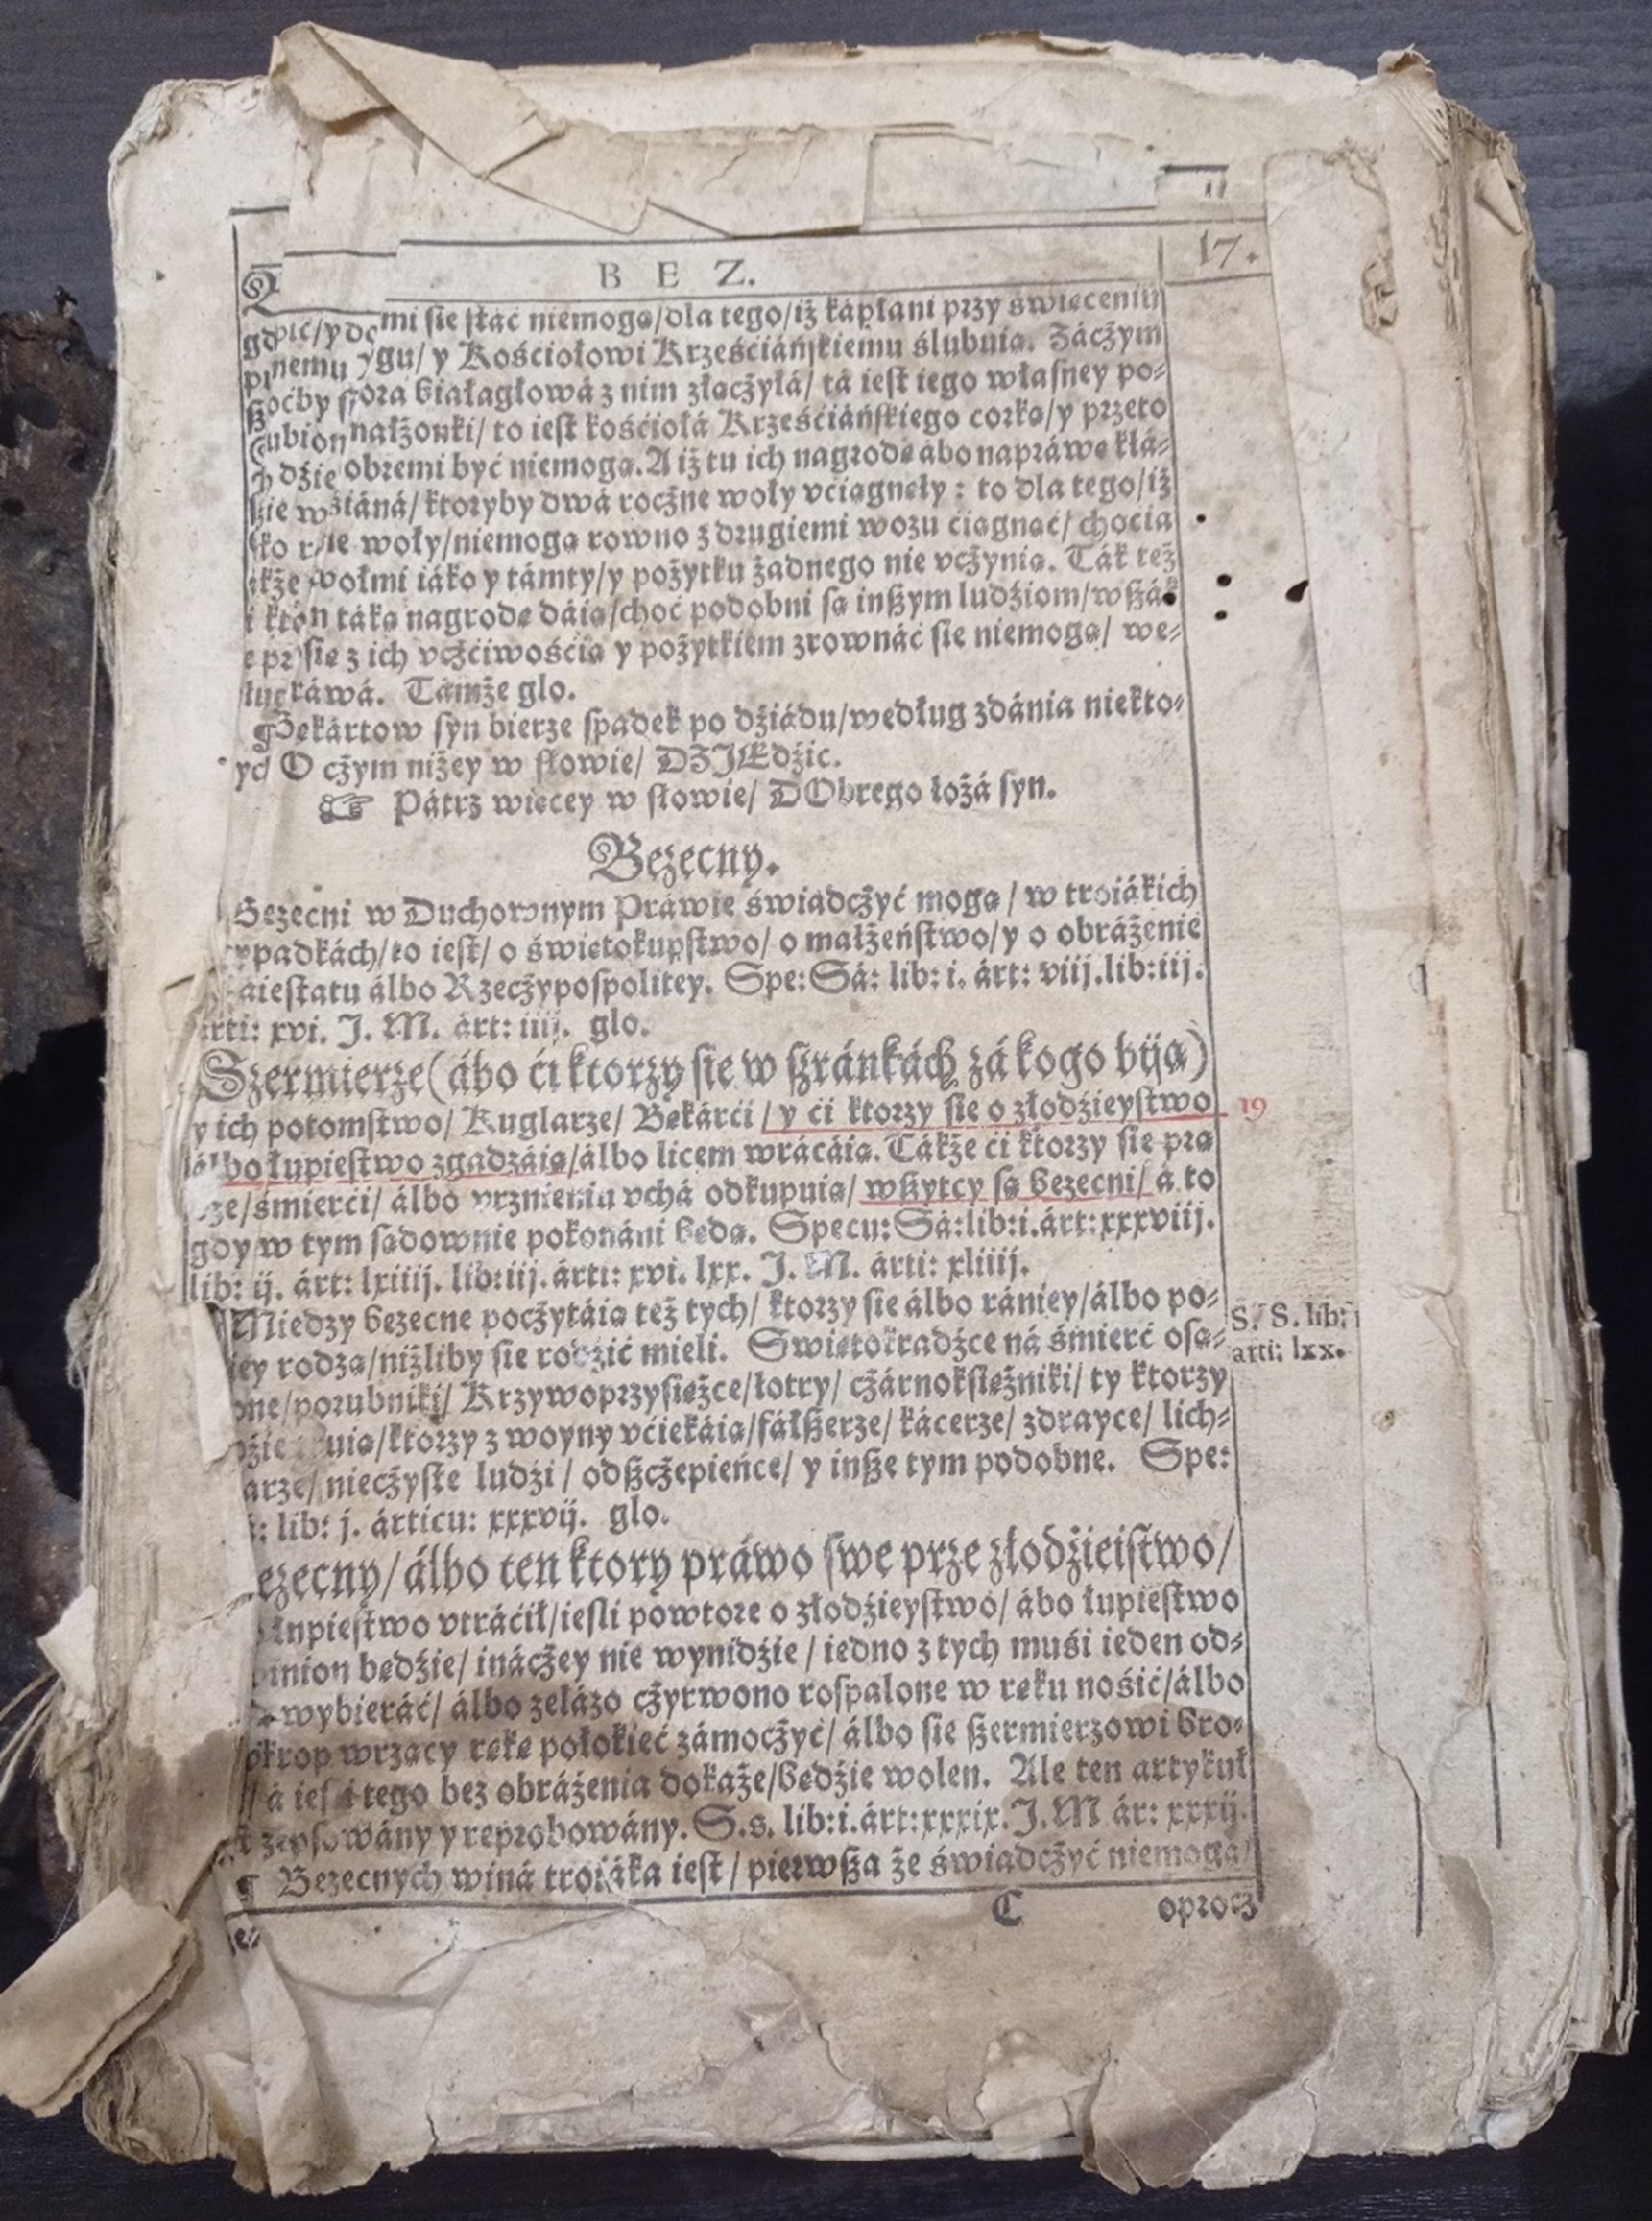 B E Z.
17.
mi sie stáć niemogą/dla tego/iż kápłani przy święceniu
Kościołowi Krześciáńskiemu ślubuią. Záczym
białagłowá z nim złączyłá/ tá iest iego własney po-
to iest kościołá Krześciáńskiego corką/y przeto
dobremi być niemogą. A iż tu ich nagrodę ábo napráwę kłá-
ktoryby dwá roczne woły vciągnęły: to dla tego/iż
woły/niemogą rowno z drugiemi wozu ciągnąć/ chocia
wołmi iáko y támty/y pożytku żadnego nie vczynią. Ták też
táką nagrodę dáią/choć podobni są inszym ludziom/wszák
sie z ich vczćiwośćią y pożytkiem zrownáć sie niemogą/ we-
práwá. Támże glo.
Bekártow syn bierze spadek po dźiádu/według zdánia niekto-
O czym niżey w słowie/ DZIEdźic.
☞ Pátrz więcey w słowie/ DObrego łożá syn.
Bezecny.
Bezecni w Duchownym Práwie świadczyć mogą/ w troiákich
ypadkách/to iest/ o świętokupstwo/ o małżeństwo/y o obráżenie
aiestatu álbo Rzeczypospolitey. Spe: Sá: lib: i. árt: viij. lib: iij.
árti: xvi. J. M. árt: iiij. glo.
Szermierze (ábo ći ktorzy sie w szránkách zá kogo biją)
y ich potomstwo/ Kuglarze/ Bekárći/ y ći ktorzy sie o złodźieystwo
19
álbo łupiestwo zgadzáią/álbo licem wrácáią. Tákże ći ktorzy sie prą
śmierći/ álbo vrznieniu vchá odkupuią/ wszytcy są bezecni/ á to
gdy w tym sądownie pokonáni będą. Specu: Sá: lib: i. árt: xxxviij.
lib: ij. árt: lxiiij. lib: iij. árti: xvi. lxx. J. M. árti: xliiij.
Miedzy bezecne poczytáią też tych/ ktorzy sie álbo rániey/álbo po-
iey rodzą/niżliby sie rodźić mieli. Swiętokradźce ná śmierć osą-
S. S. lib: i
arti: lxx.
one/porubniki/ Krzywoprzysiężce/łotry/ czárnoksiężniki/ ty ktorzy
ktorzy z woyny vćiekáią/fáłszerze/ kácerze/ zdrayce/ lich-
arze/ nieczyste ludźi/ odszczepieńce/ y insze tym podobne. Spe:
lib: j. árticu: xxxvij. glo.
ezecny/álbo ten ktory práwo swe prze złodźieistwo/
łupiestwo vtráćił/iesli powtore o złodźieystwo/ ábo łupiestwo
winion będźie/ ináczey nie wynidźie/ iedno z tych muśi ieden od-
wybieráć/ álbo żelázo czyrwono rospalone w ręku nośić/álbo
okrop wrzący rękę połokieć zámoczyć/ álbo sie szermierzowi bro-
á iesli tego bez obráżenia dokaże/będźie wolen. Ale ten artykuł
zepsowány y reprobowány. S. s. lib: i. árt: xxxix. J. M ár: xxxij.
¶ Bezecnych winá troiáka iest/ pierwsza że świadczyć niemogą/
C
oprocz